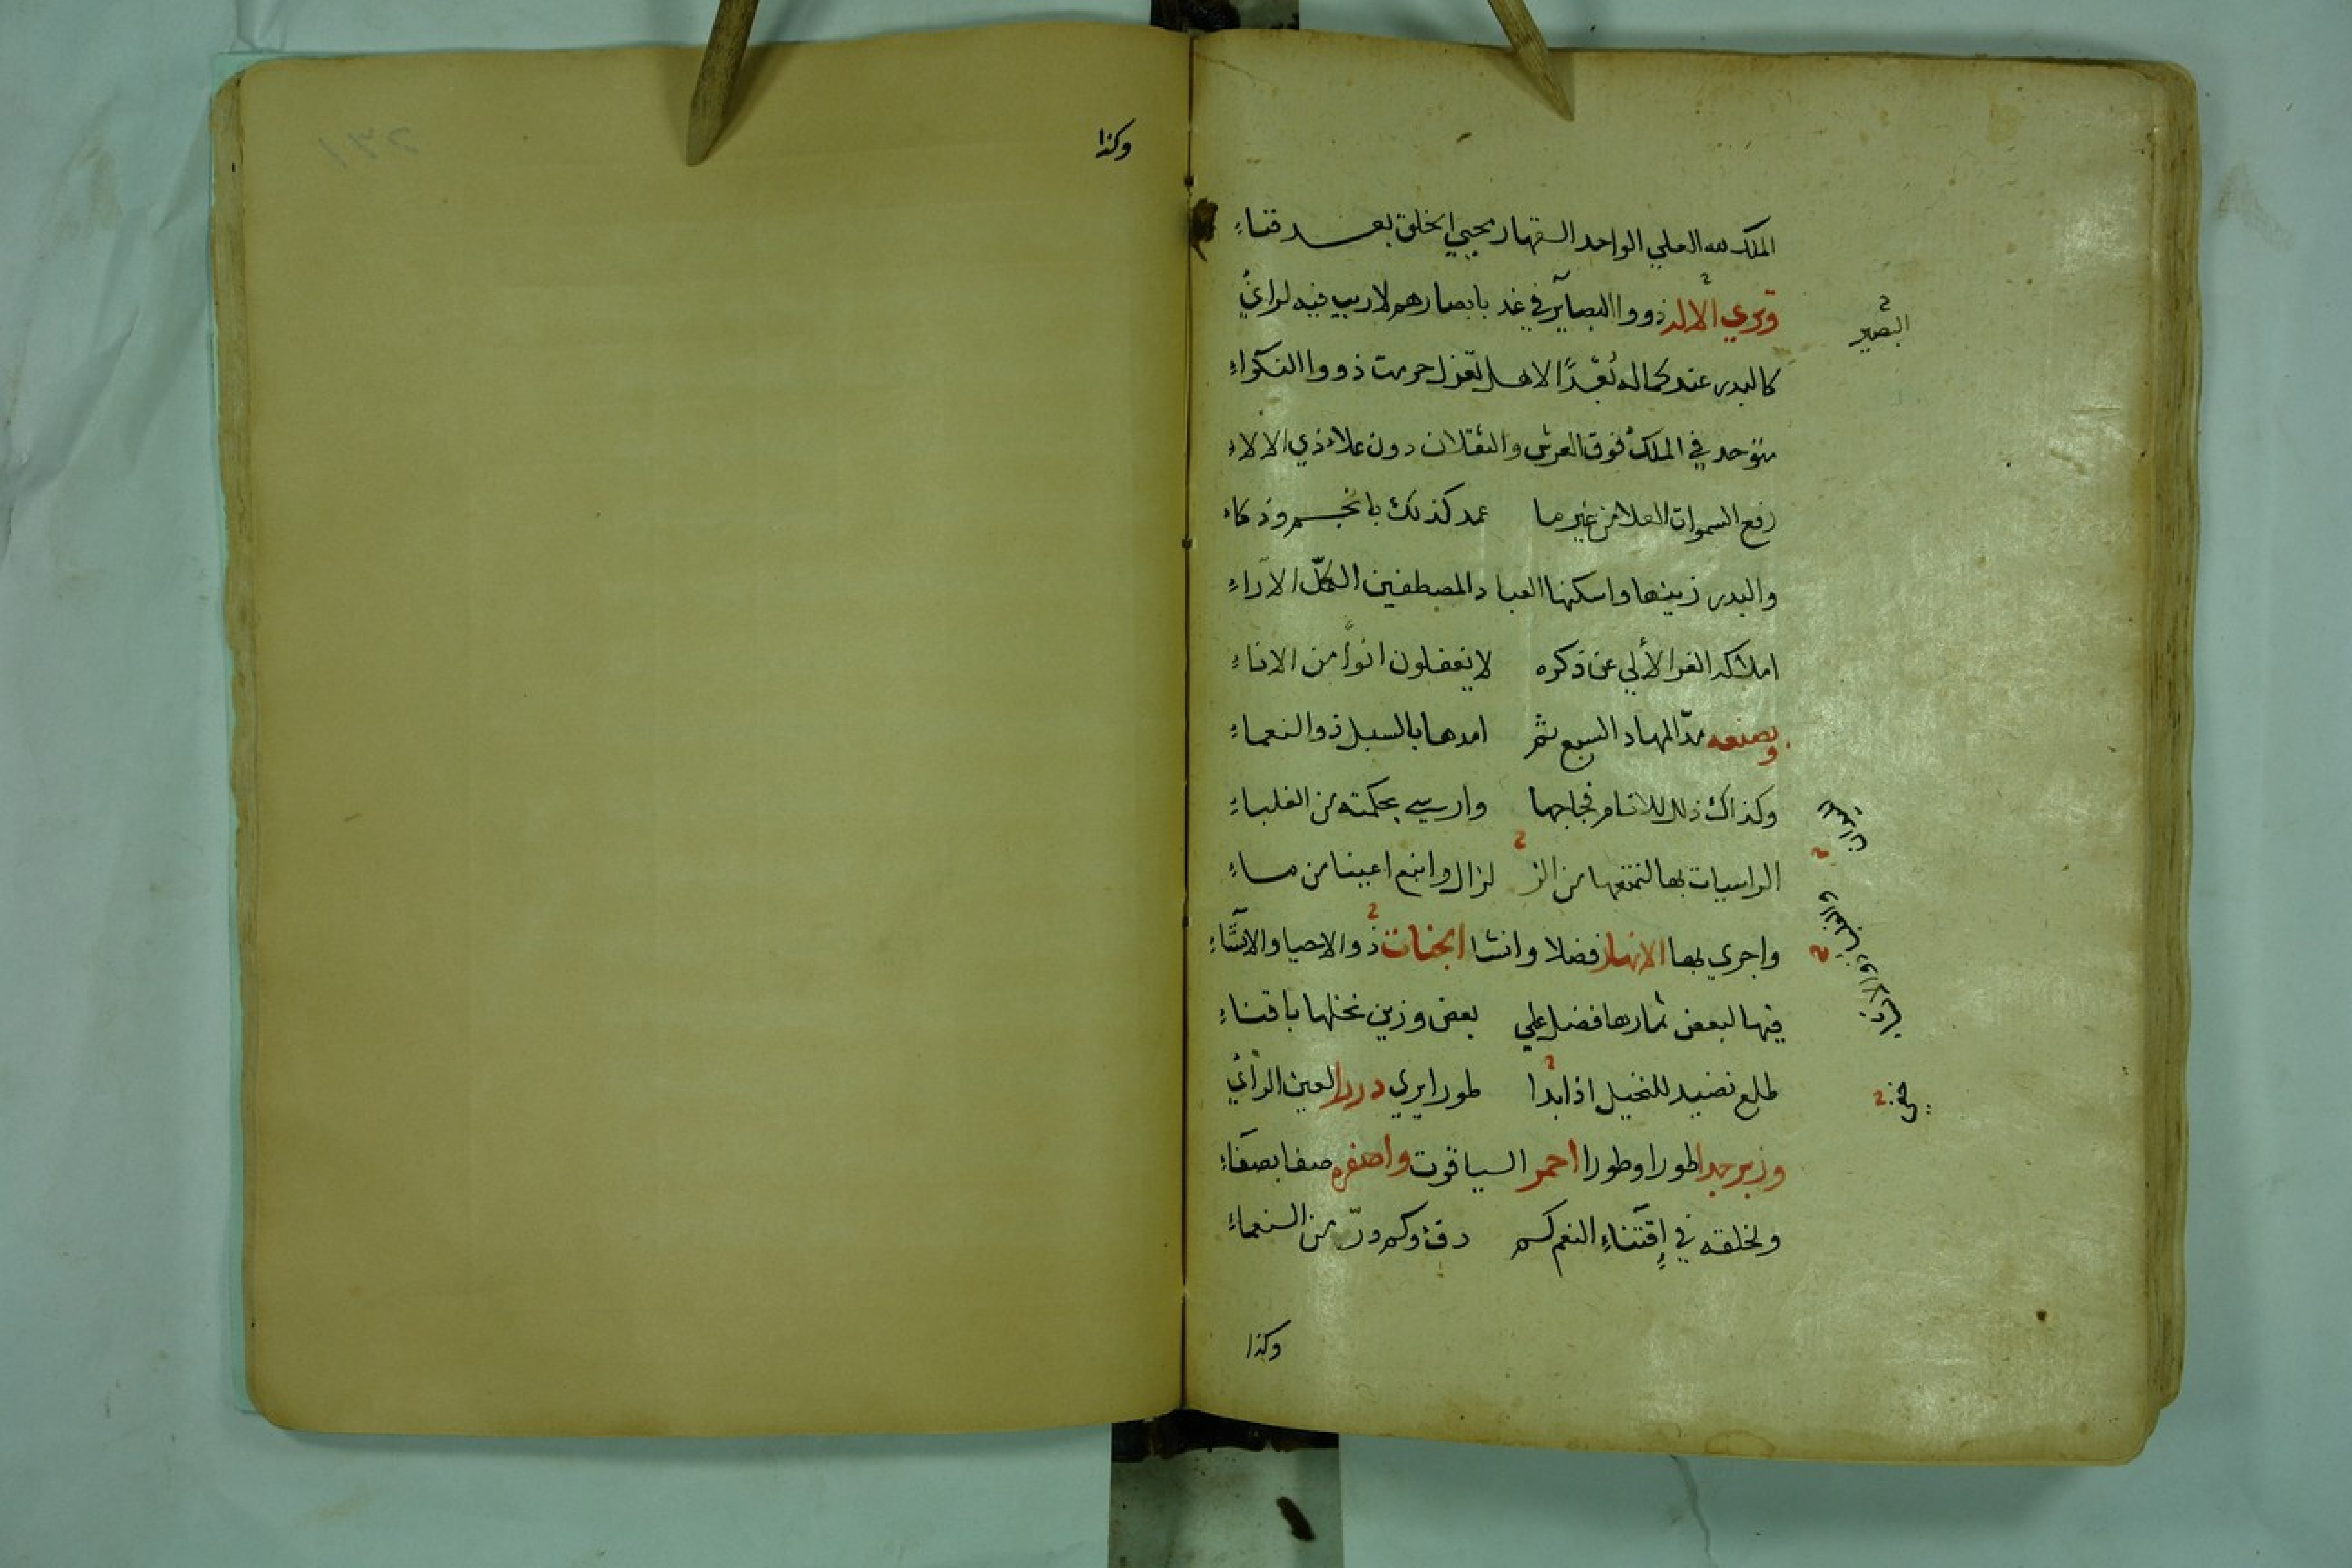 الملك لله العلي الواحد القهار يحيي الخلق بعد فناءِ
وترى الاله ذووا البصآئر في غد بابصارهم لاريب فيه لرائي
البصير
كالبدر عند كماله بُعْدًا لاهل تعزل حرمت ذووا النكراءِ
متوحد في الملك فوق العرش والثقلان دون علاء ذي الالاءِ
رفع السموات العلا من غير ما عمد كذلك بانجم وذكاء
والبدر زينها واسكنها العباد المصطفين الكمّل الآراءِ
املاكه الغر الألي عن ذكره لا يغفلون انوًا من الاناءِ
وبصنعه مدّ المهاد السبع ثم امدها بالسبل ذو النعماءِ
وكذاك ذلل للانام فجاجها وارسى بحكمته من الغلباءِ
الراسيات بها لتمنعها من الز لزال وانبع اعينا من ماءِ
واجري بها الانهار فضلا وانشا الجنات ذو الاحيا والانشآءِ
فيها لبعض ثمارها فضل علي بعض وزين نخلها باقناءِ
طلع نضيد للنخيل اذا بدا طورا يرى دررا لعين الرائي
وزبرجدا طورا وطورا احمر الياقوت واصفره صفا بصفآءِ
ولخلقه في إقتناءِ النعم كم دفء وكم درّ من النعماءِ
وكذا
وكذا